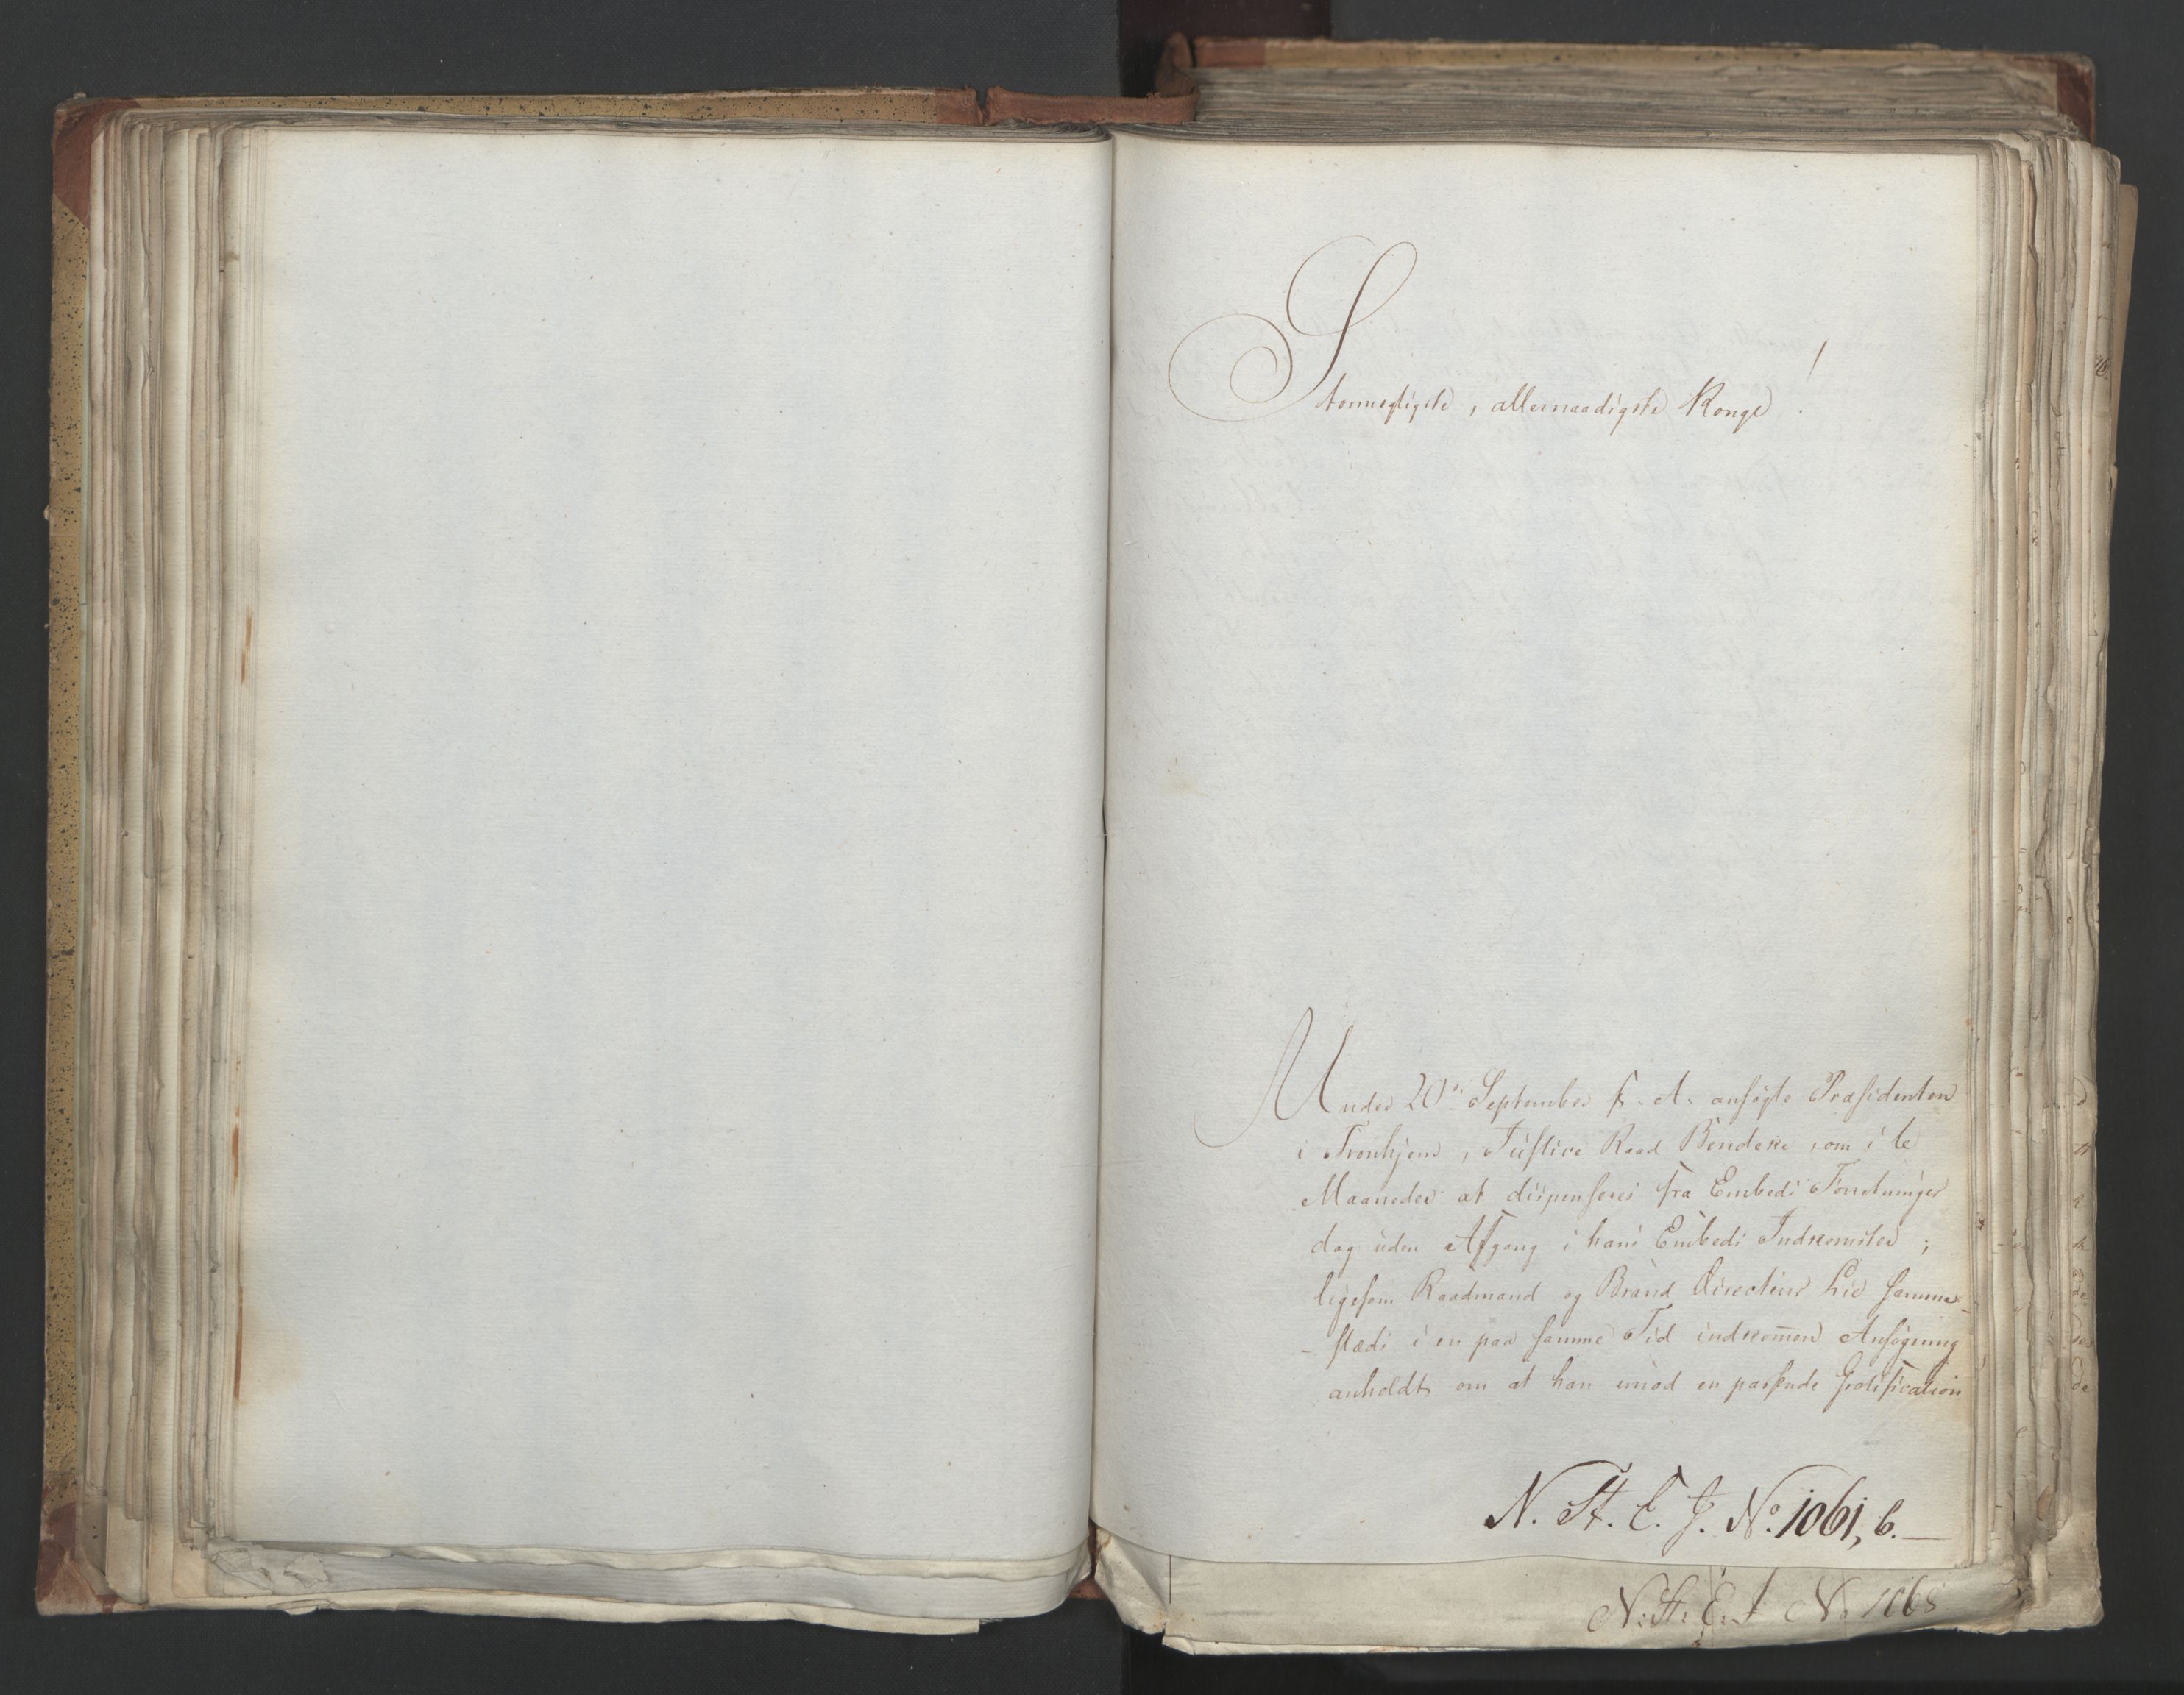 Stormægtigste, allernaadigste Konge!
Under 20de September f. A. ansøgte Præsidenten
i Tronhjem, Justice Raad Bendeke, om i 6
Maaneder at dispenseres fra Embeds Forretninger
dog uden Afgang i hans Embeds Indkomster;
ligesom Raadmand og Brand Directeur Lie samme-
stæds i en paa samme Tid indkommen Ansøgning
anholdt om at han imod en passende Gratification
N. St. E. J. No. 1061, b.
N. St. E. J. No 1068